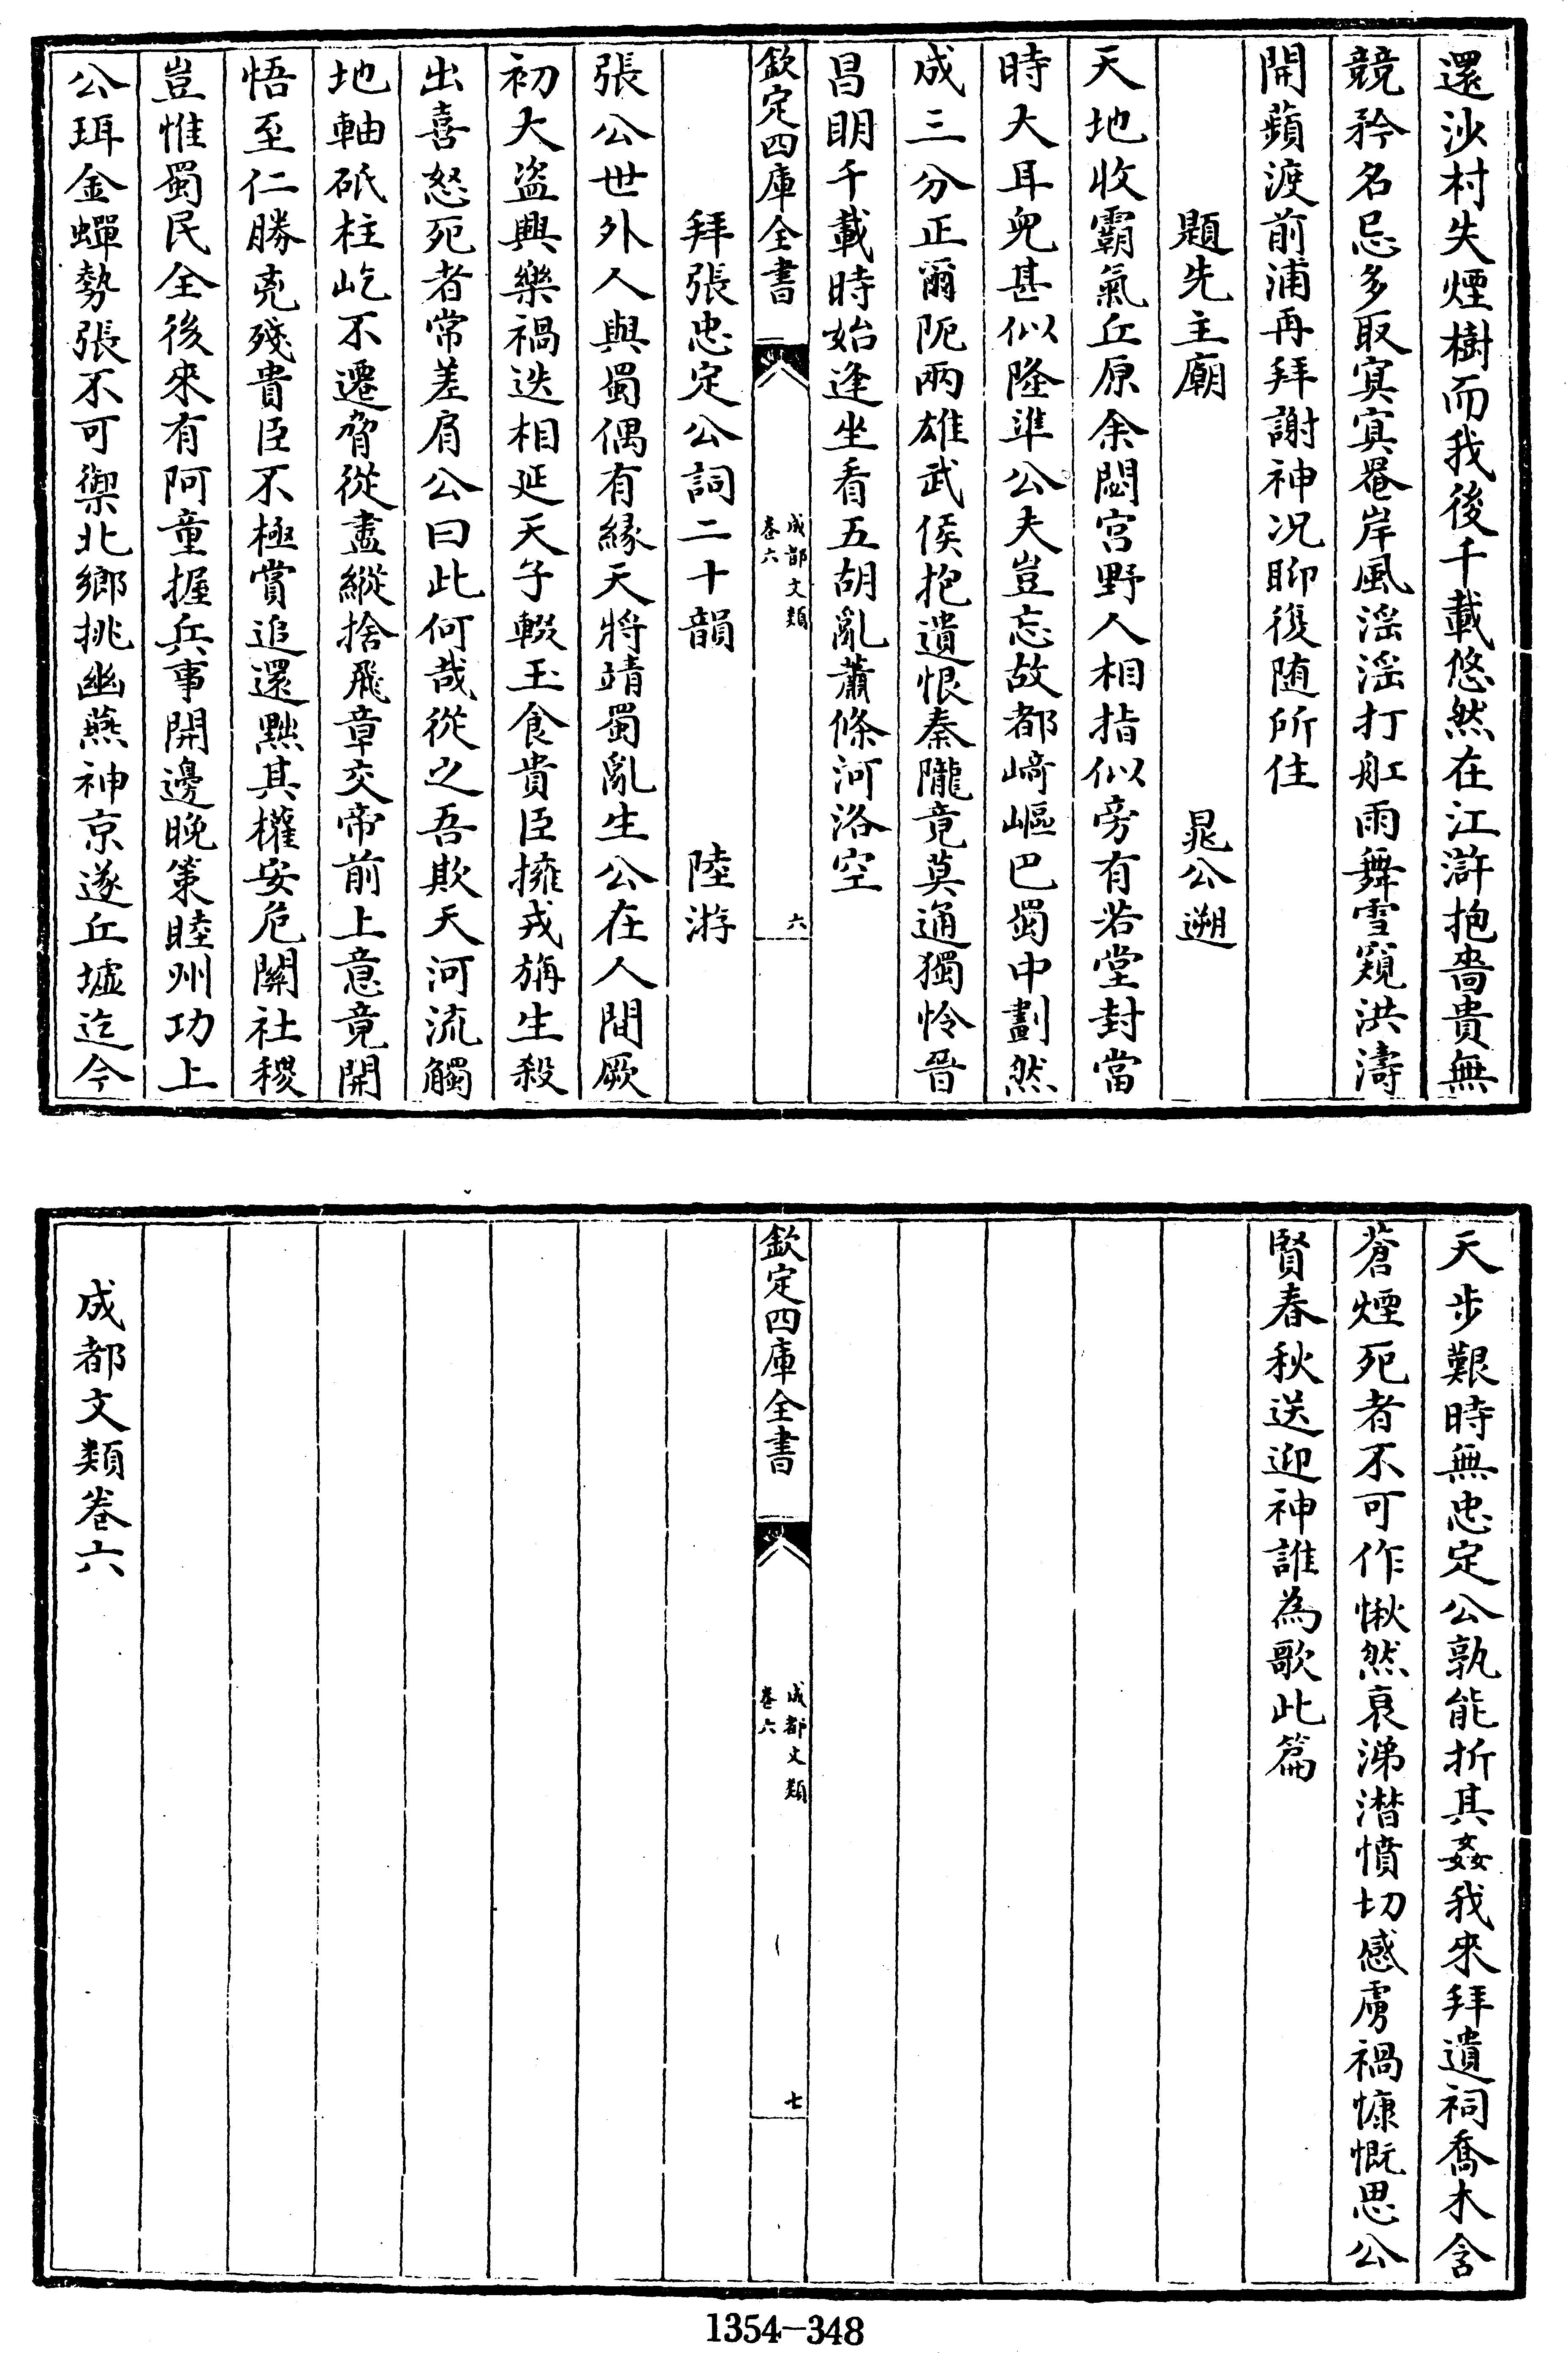 還沙村失煙樹而我後千載悠然在江滸抱嗇貴無
競矜名忌多取寞寞罨岸風滛滛打舡雨舞雪窺洪濤
開蘋渡前浦再拜謝神况聊復随所住
題先主廟 晁公遡
天地收霸氣丘原余閟宫野人相指似旁有若堂封當
時大耳兒甚似隆準公夫豈忘故都﨑嶇巴蜀中劃然
成三分正爾阨兩雄武侯抱遺恨秦隴竟莫通獨怜晉
昌明千載時始逢坐看五胡亂蕭條河洛空
欽定四庫全書
成都文類
卷六
六
拜張忠定公詞二十韻 陸游
張公世外人與蜀偶有緣天將靖蜀亂生公在人間厥
初大盗興樂禍迭相延天子輟玉食貴臣擁戎旃生殺
出喜怒死者常差肩公曰此何哉從之吾欺天河流觸
地軸砥柱屹不遷脅從盡縱捨飛章交帝前上意竟開
悟至仁勝克殘貴臣不極賞追還黜其權安危關社稷
豈惟蜀民全後來有阿童握兵事開邊晩策睦州功上
公珥金蟬勢張不可禦北鄉挑幽燕神京遂丘墟迄今
天步艱時無忠定公孰能折其姦我來拜遺祠喬木含
蒼煙死者不可作愀然哀涕潸憤切感虜禍慷慨思公
賢春秋送迎神誰為歌此篇
欽定四庫全書
成都文類
卷六
七
成都文類卷六
1354-348